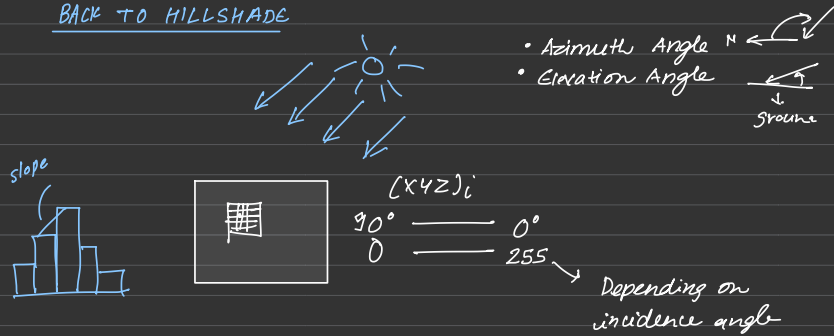 BACK TO HILLSHADE
• Azimuth Angle N
• Elevation Angle
ground
slope
(XYZ)i
90° 0°
0 255
Depending on
incidence angle